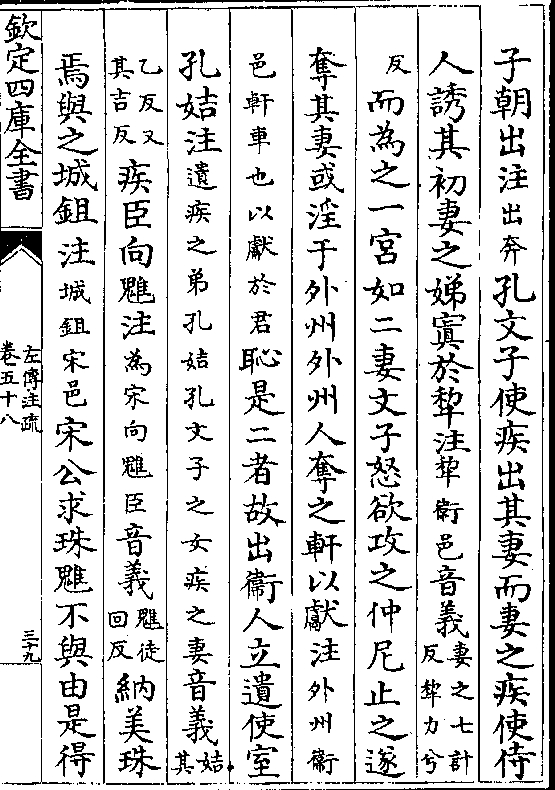 子朝出注出奔孔文子使疾出其妻而妻之疾使侍
人誘其初妻之娣寘於犂注犂衛邑音義妻之七計
反犂力兮
反而為之一宮如二妻文子怒欲攻之仲尼止之遂
奪其妻或淫于外州外州人奪之軒以獻注外州衛
邑軒車也以獻於君恥是二者故出衞人立遺使室
孔姞注遺疾之弟孔姞孔文子之女疾之妻音義姞
其
乙反又
其吉反疾臣向魋注為宋向魋臣音義魋徒
回反納美珠
焉與之城鉏注城鉏宋邑宋公求珠魋不與由是得
欽定四庫全書
左傳注疏
卷五十八
三十九